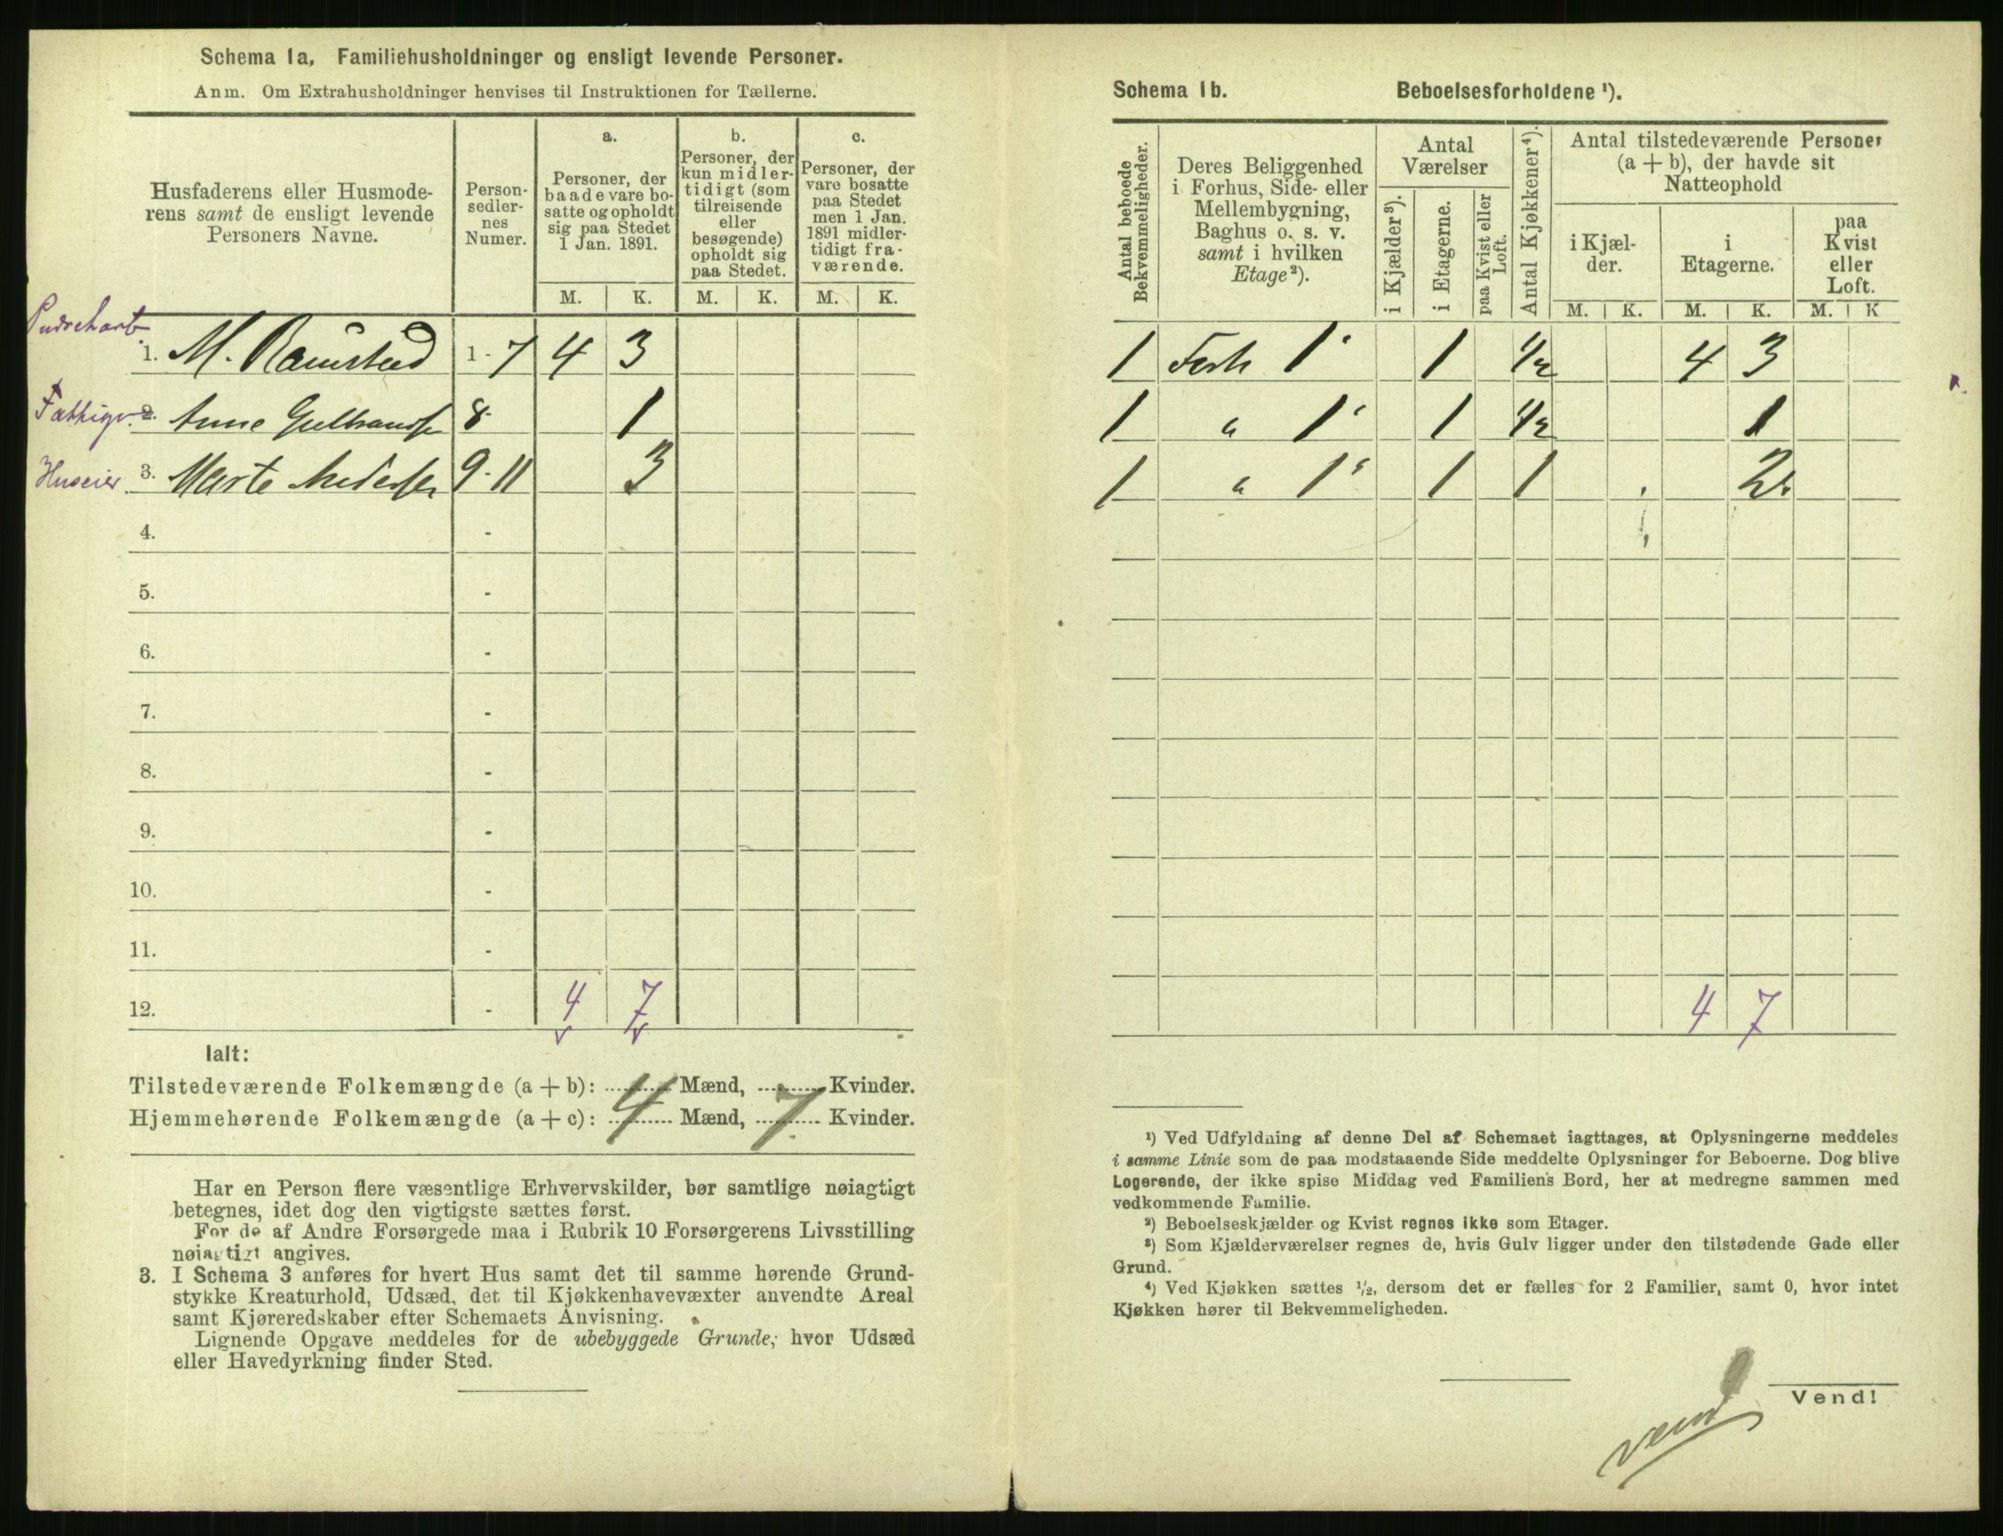 Schema 1a, Familiehusholdninger og ensligt levende Personer.
Anm. Om Extrahusholdninger henvises til Instruktionen for Tællerne.
Husfaderens eller Husmode-
rens samt de ensligt levende
Personers Navne.
Person-
sedler-
nes
Numer.
a.
Personer, der
baade vare bo-
satte og opholdt
sig paa Stedet
1 Jan. 1891.
b.
Personer, der
kun midler-
tidigt (som
tilreisende
eller
besøgende)
opholdt sig
paa Stedet.
c.
Personer, der
vare bosatte
paa Stedet
men 1 Jan.
1891 midler-
tidigt fra-
værende.
M. K. M. K. M. K.
1. M. Ramstad 1-7 4 3
Fattigv. 2. Anne Gulbrands 8- 1
Huseier. 3. Marte Anders 9-11 3
4. -
5. -
6. -
7. -
8. -
9. -
10. -
11. -
12. - 4 7
Ialt:
Tilstedeværende Folkemængde (a + b): Mænd, Kvinder.
Hjemmehørende Folkemængde (a + c): 4 Mænd, 7 Kvinder.
Har en Person flere væsentlige Erhvervskilder, bør samtlige nøiagtigt
betegnes, idet dog den vigtigste sættes først.
For de af Andre Forsørgede maa i Rubrik 10 Forsørgerens Livsstilling
nøiagtigt angives.
3. I Schema 3 anføres for hvert Hus samt det til samme hørende Grund-
stykke Kreaturhold, Udsæd, det til Kjøkkenhavevæxter anvendte Areal
samt Kjøreredskaber efter Schemaets Anvisning.
Lignende Opgave meddeles for de ubebyggede Grunde, hvor Udsæd
eller Havedyrkning finder Sted.
Schema 1b. Beboelsesforholdene ¹).
Antal beboede
Bekvemmeligheder.
Deres Beliggenhed
i Forhus, Side- eller
Mellembygning,
Baghus o. s. v.
samt i hvilken
Etage²).
Antal
Værelser
i Kjælder³).
i Etagerne.
paa Kvist eller
Loft.
Antal Kjøkkener⁴).
Antal tilstedeværende Personer
(a + b), der havde sit
Natteophold
i Kjæl-
der.
i
Etagerne.
paa
Kvist
eller
Loft.
M. K. M. K. M. K
1 Forh 1' 1 1/2 4 3
1 " 1' 1 1/2 1
1 " 1' 1 1 2
4 7
¹) Ved Udfyldning af denne Del af Schemaet iagttages, at Oplysningerne meddeles
i samme Linie som de paa modstaaende Side meddelte Oplysninger for Beboerne. Dog blive
Logerende, der ikke spise Middag ved Familiens Bord, her at medregne sammen med
vedkommende Familie.
²) Beboelseskjælder og Kvist regnes ikke som Etager.
³) Som Kjælderværelser regnes de, hvis Gulv ligger under den tilstødende Gade eller
Grund.
⁴) Ved Kjøkken sættes ½, dersom det er fælles for 2 Familier, samt 0, hvor intet
Kjøkken hører til Bekvemmeligheden.
Vend!
Vend